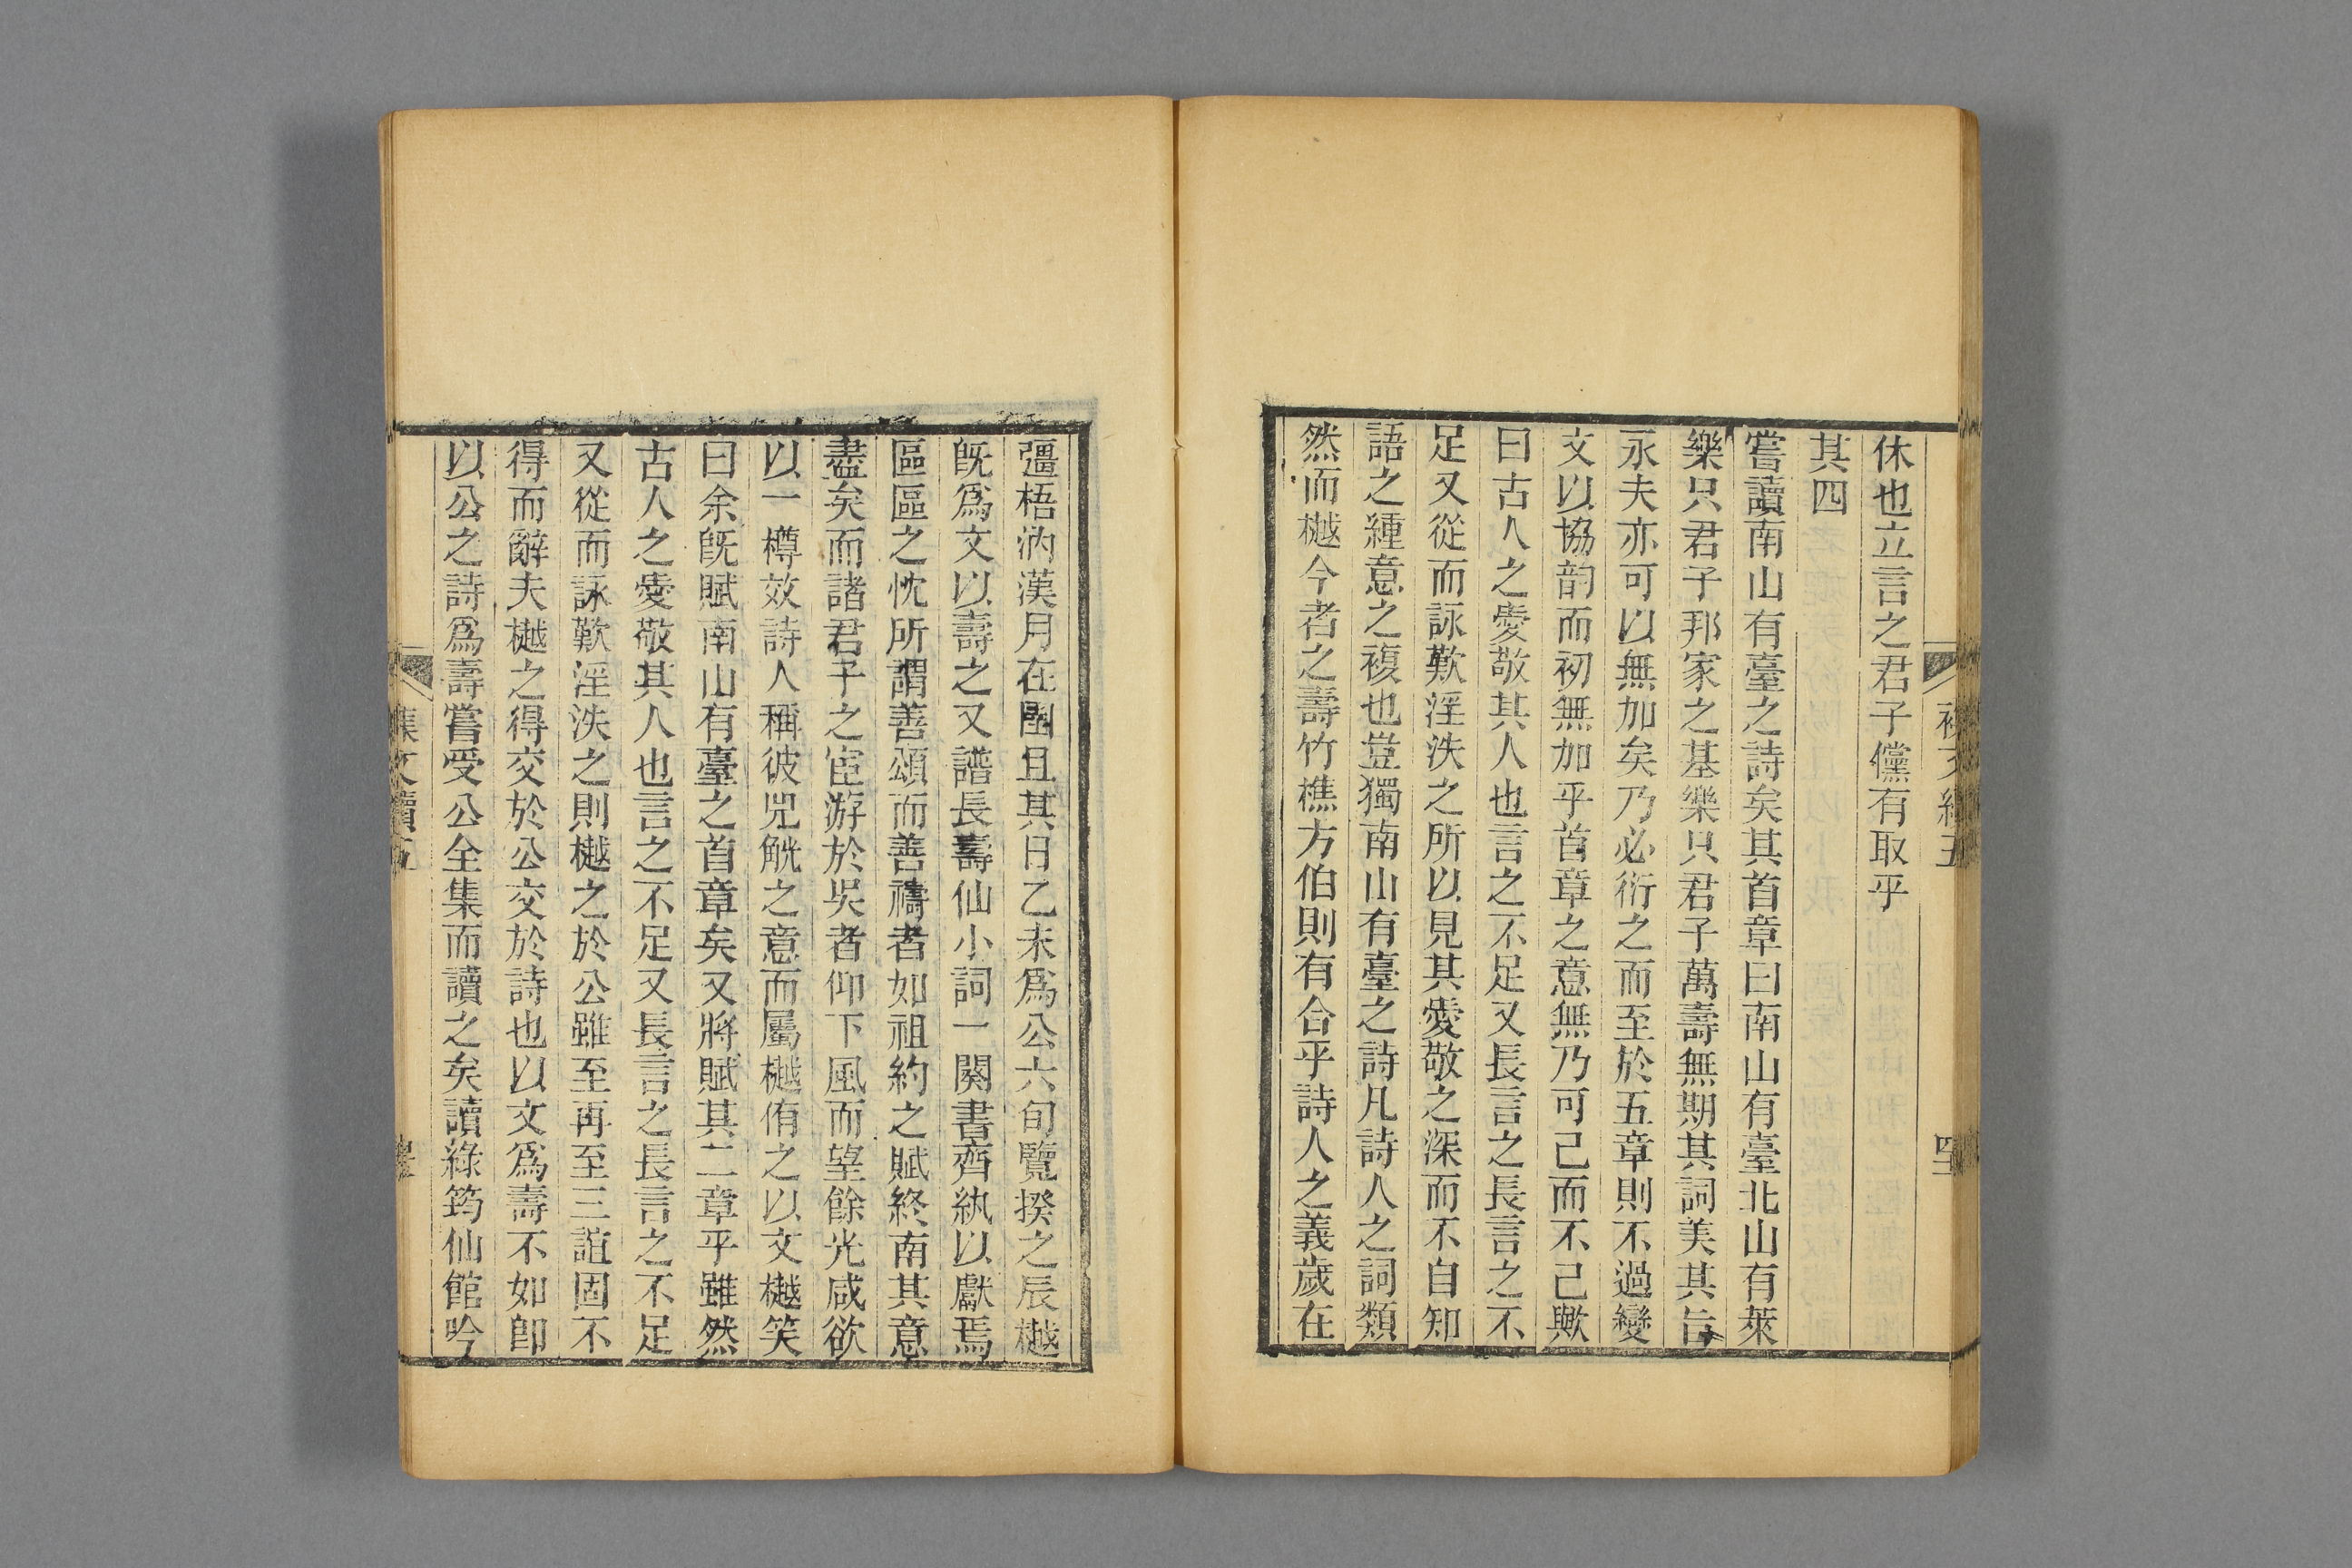 休也立言之君子儻有取乎
其四
嘗讀南山有臺之詩矣其首章曰南山有臺北山有萊
樂只君子邦家之基樂只君子萬壽無期其詞美其旨
永夫亦可以無加矣乃必衍之而至於五章則不過變
文以協韵而初無加乎首章之意無乃可已而不已歟
曰古人之愛敬其人也言之不足又長言之長言之不
足又從而詠歎淫泆之所以見其愛敬之深而不自知
語之緟意之複也豈獨南山有臺之詩凡詩人之詞類
然而樾今者之壽竹樵方伯則有合乎詩人之義歲在
彊梧汭漢月在圉且其日乙未爲公六旬覽揆之辰樾
旣爲文以壽之又譜長壽仙小詞一闋書齊紈以獻焉
區區之忱所謂善頌而善禱者如祖約之賦終南其意
盡矣而諸君子之宦游於吳者仰下風而望餘光咸欲
以一樽效詩人稱彼兕觥之意而屬樾侑之以文樾笑
曰余旣賦南山有臺之首章矣又將賦其二章乎雖然
古人之愛敬其人也言之不足又長言之長言之不足
又從而詠歎淫泆之則樾之於公雖至再至三誼固不
得而辭夫樾之得交於公交於詩也以文爲壽不如卽
以公之詩爲壽嘗受公全集而讀之矣讀綠筠仙館吟